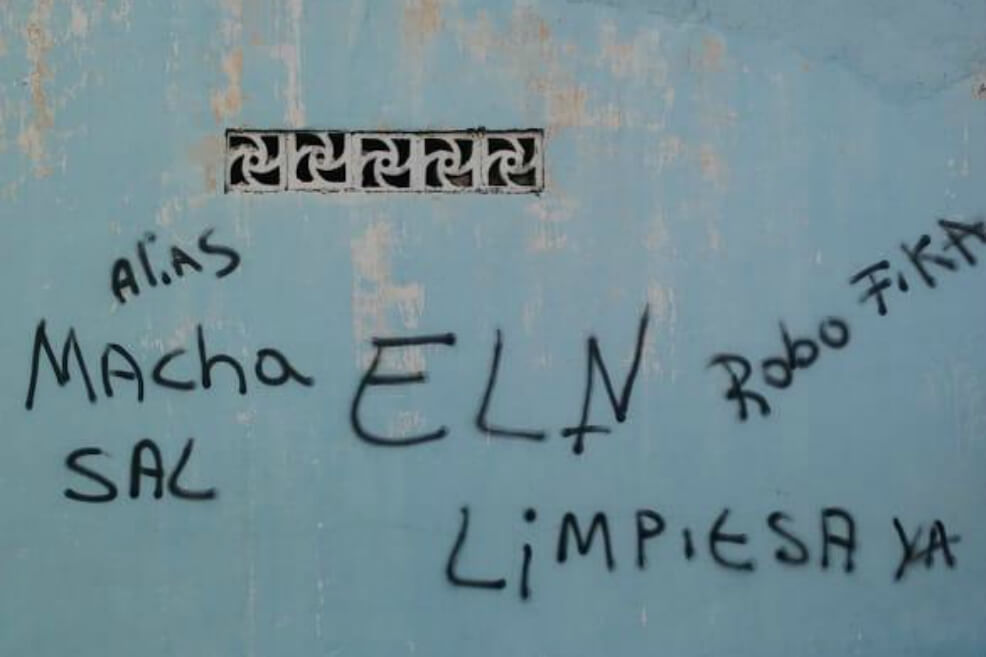 ALiAS
MAcha
SAL
ELN
Robo FiKA
LiMPiESA YA